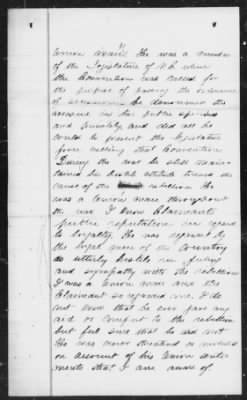 Union man". He was a member
of the Legislature of N.C. when
the Convention was called for
the purpose of passing the ordinance
of secession he denounced the
measure in his public speeches
and privately and did all he
could to prevent the legislature
from calling that Convention
During the war he still main-
tained his hostile attitude toward the
cause of the rebellion He
was a Union man throughout
the war. I know Claimants
public reputation in regard
to loyalty. He was regarded by
the loyal men of the Country
as utterly hostile in feeling
and sympathy with the rebellion
I was a Union man and the
Claimant so regarded me. I do
not know that he ever gave any
aid or comfort to the rebellion
but feel sure that he did not
He was never threatened or molested
on account of his Union senti-
ments that I am aware of